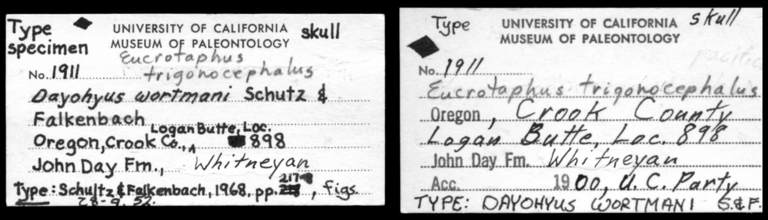 Type
specimen
UNIVERSITY OF CALIFORNIA
MUSEUM OF PALEONTOLOGY
skull
Eucrotaphus
No. 1911 trigonocephalus
Dayohyus wortmani Schutz &
Falkenbach
Logan Butte, Loc.
Oregon, Crook Co., 898
John Day Fm., Whitneyan
Type: Schultz & Falkenbach, 1968, pp. 217, figs.
28-9, 52.
Type
UNIVERSITY OF CALIFORNIA
MUSEUM OF PALEONTOLOGY
skull
pacific
No. 1911
Eucrotaphus trigonocephalus
Oregon, Crook County
Logan Butte, Loc. 898
John Day Fm. Whitneyan
Acc. 1900, U.C. Party
TYPE: DAYOHYUS WORTMANI S.&F.